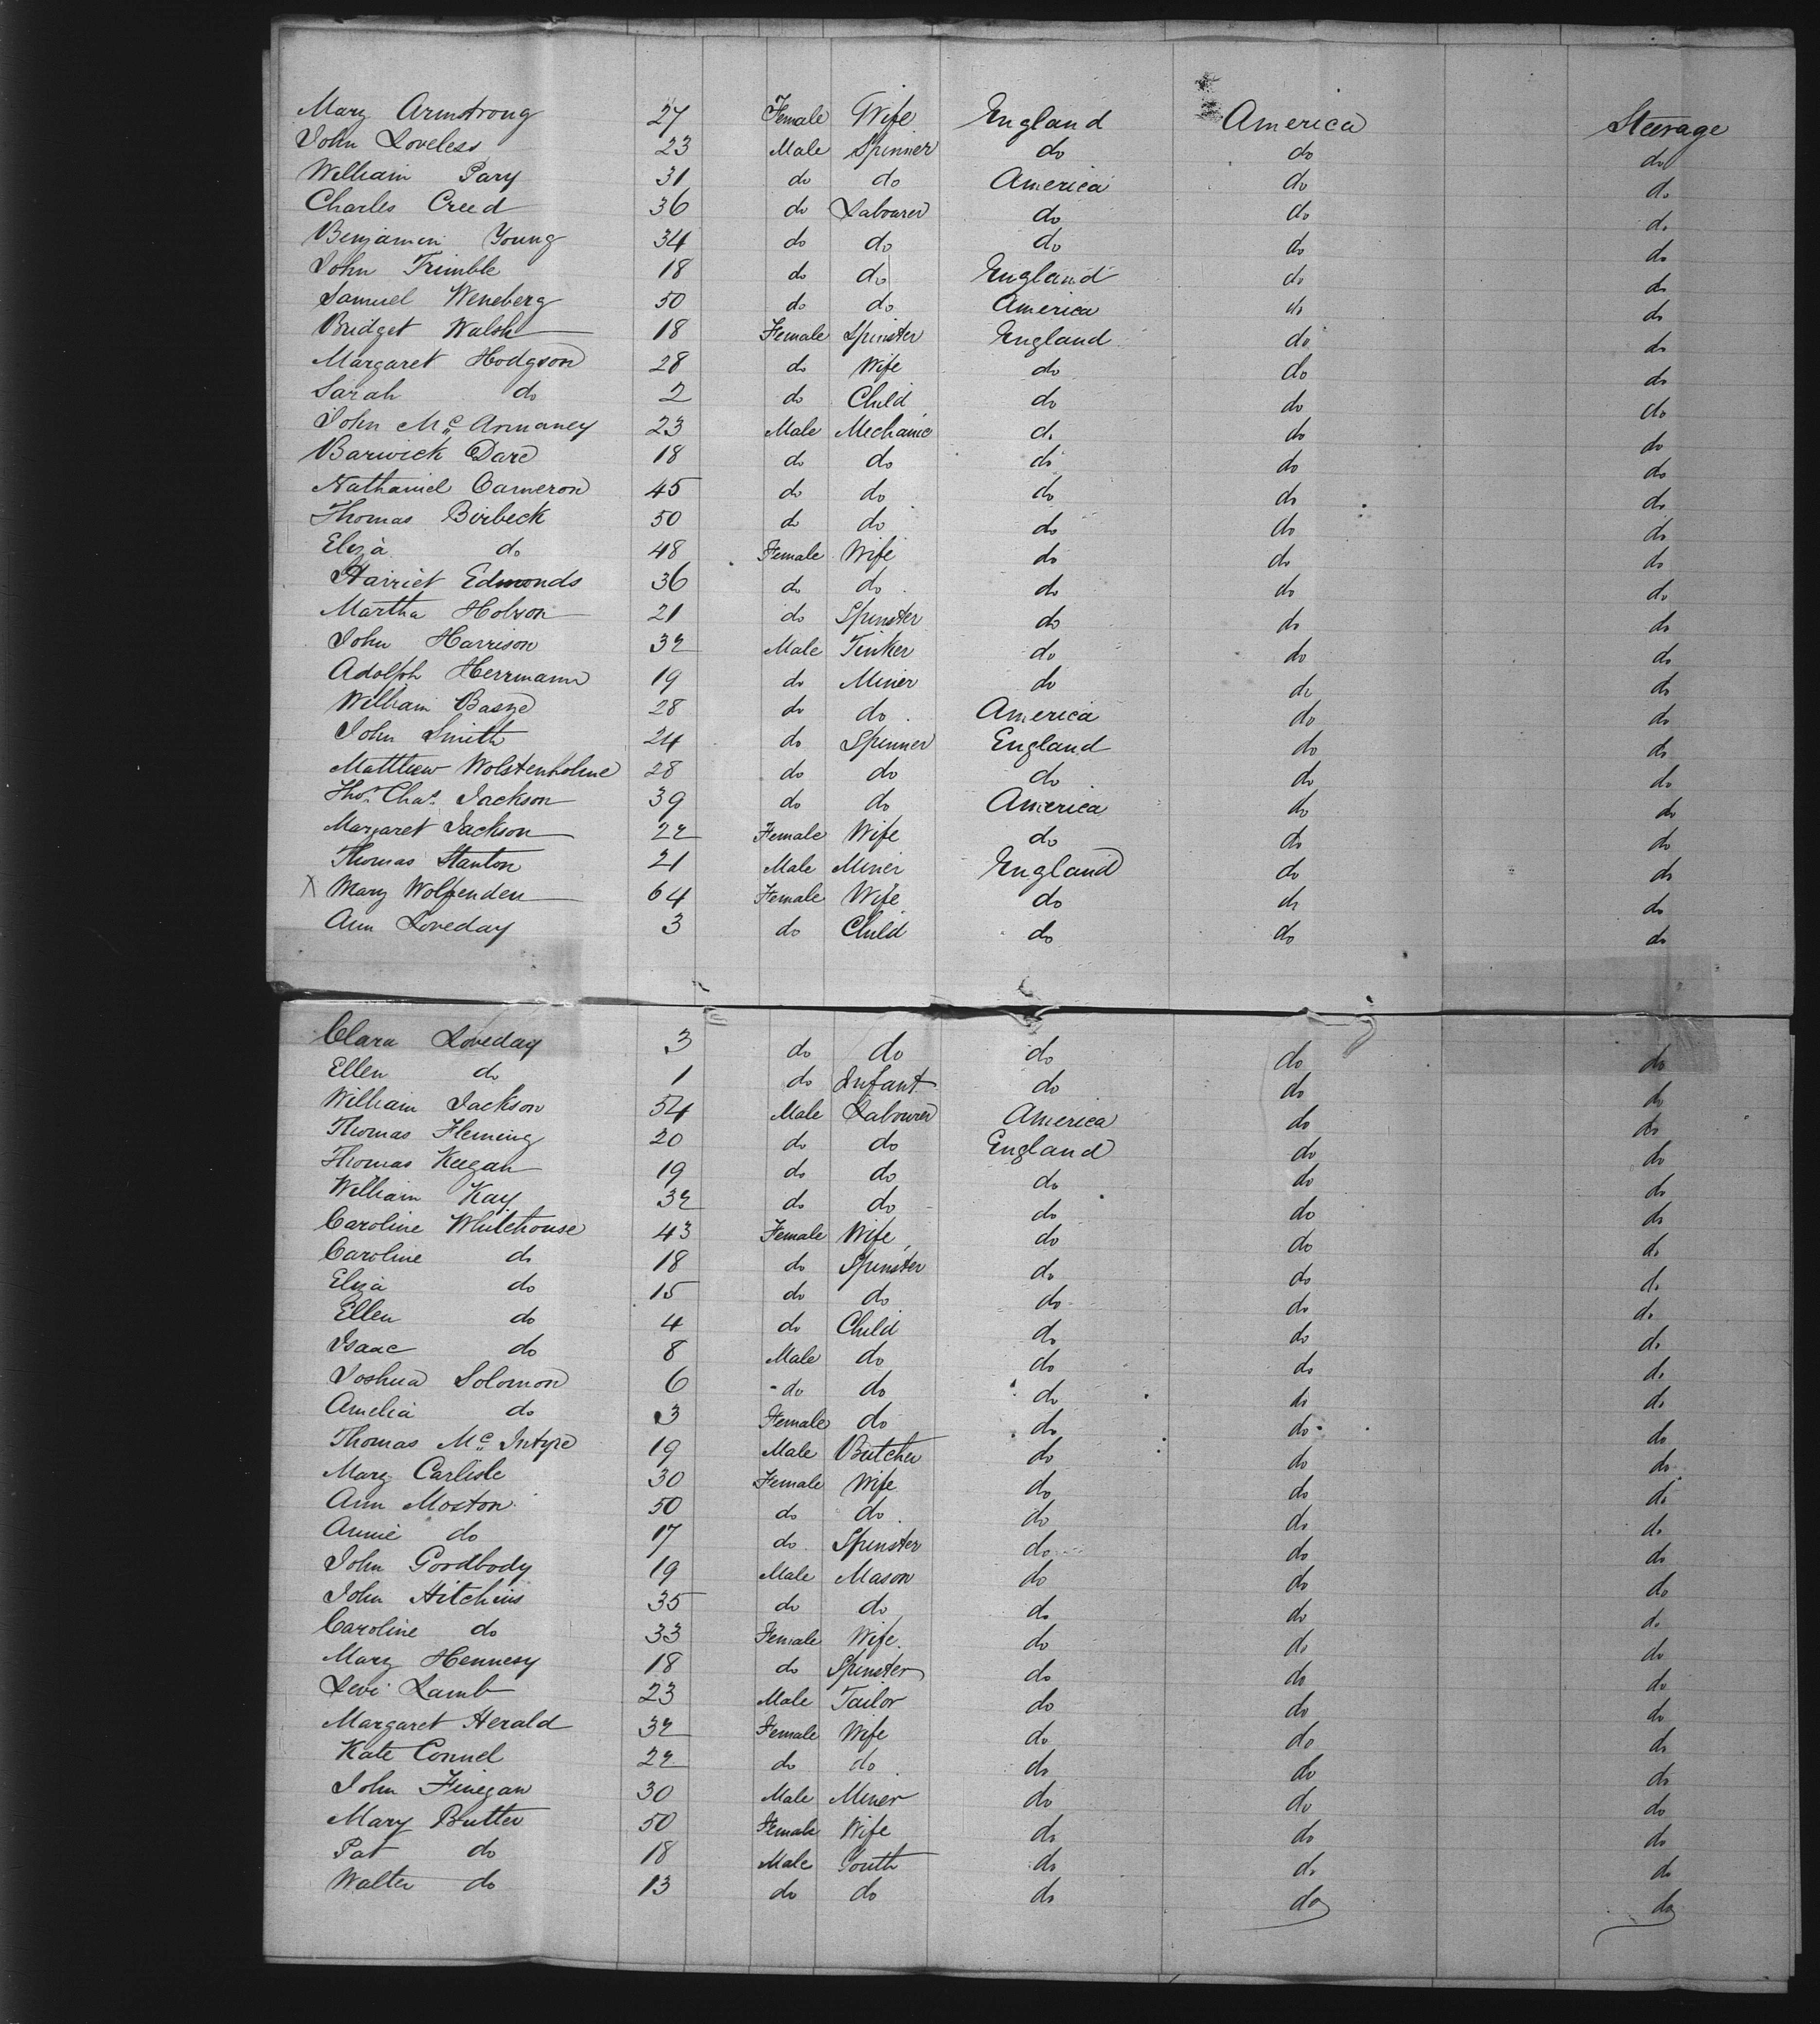 Mary Armstrong 27 Female Wife England America Steerage
John Loveless 23 Male Spinner do do do
William Pary 31 do do America do do
Charles Creed 36 do Labourer do do do
Benjamin Young 34 do do do do do
John Trimble 18 do do England do do
Samuel Weneberg 50 do do America do do
Bridget Walsh 18 Female Spinster England do do
Margaret Hodgson 28 do Wife do do do
Sarah do 2 do Child do do do
John Mc Armaney 23 Male Mechanic do do do
Barwick Dare 18 do do do do do
Nathaniel Cameron 45 do do do do do
Thomas Birbeck 50 do do do do do
Eliza do 48 Female Wife do do do
Harriet Edmonds 36 do do do do do
Martha Hobson 21 do Spinster do do do
John Harrison 32 Male Tinker do do do
Adolph Herrmann 19 do Miner do do do
William Basye 28 do do America do do
John Smith 24 do Spinner England do do
Matthew Wolstenholme 28 do do do do do
Thos. Chas. Jackson 39 do do America do do
Margaret Jackson 22 Female Wife do do do
Thomas Stanton 21 Male Miner England do do
X Mary Wolfenden 64 Female Wife do do do
Ann Loveday 3 do Child do do do
Clara Loveday 3 do do do do do
Ellen do 1 do Infant do do do
William Jackson 54 Male Labourer America do do
Thomas Fleming 20 do do England do do
Thomas Keegan 19 do do do do do
William Kay 32 do do do do do
Caroline Whitehouse 43 Female Wife do do do
Caroline do 18 do Spinster do do do
Eliza do 15 do do do do do
Ellen do 4 do Child do do do
Isaac do 8 Male do do do do
Joshua Solomon 6 do do do do do
Amelia do 3 Female do do do do
Thomas Mc Intyre 19 Male Butcher do do do
Mary Carlisle 30 Female Wife do do do
Ann Moston 50 do do do do do
Annie do 17 do Spinster do do do
John Goodbody 19 Male Mason do do do
John Hitchins 35 do do do do do
Caroline do 33 Female Wife do do do
Mary Hennesy 18 do Spinster do do do
Levi Lamb 23 Male Tailor do do do
Margaret Herald 32 Female Wife do do do
Kate Connel 22 do do do do do
John Finegan 30 Male Miner do do do
Mary Butter 50 Female Wife do do do
Pat do 18 Male Youth do do do
Walter do 13 do do do do do